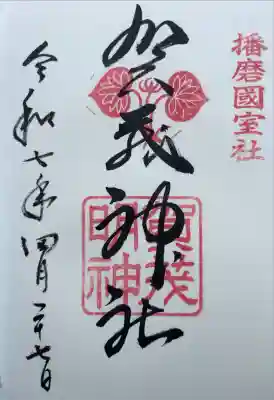 播磨國室社
賀茂神社
賀茂
明神
令和七年四月二十七日